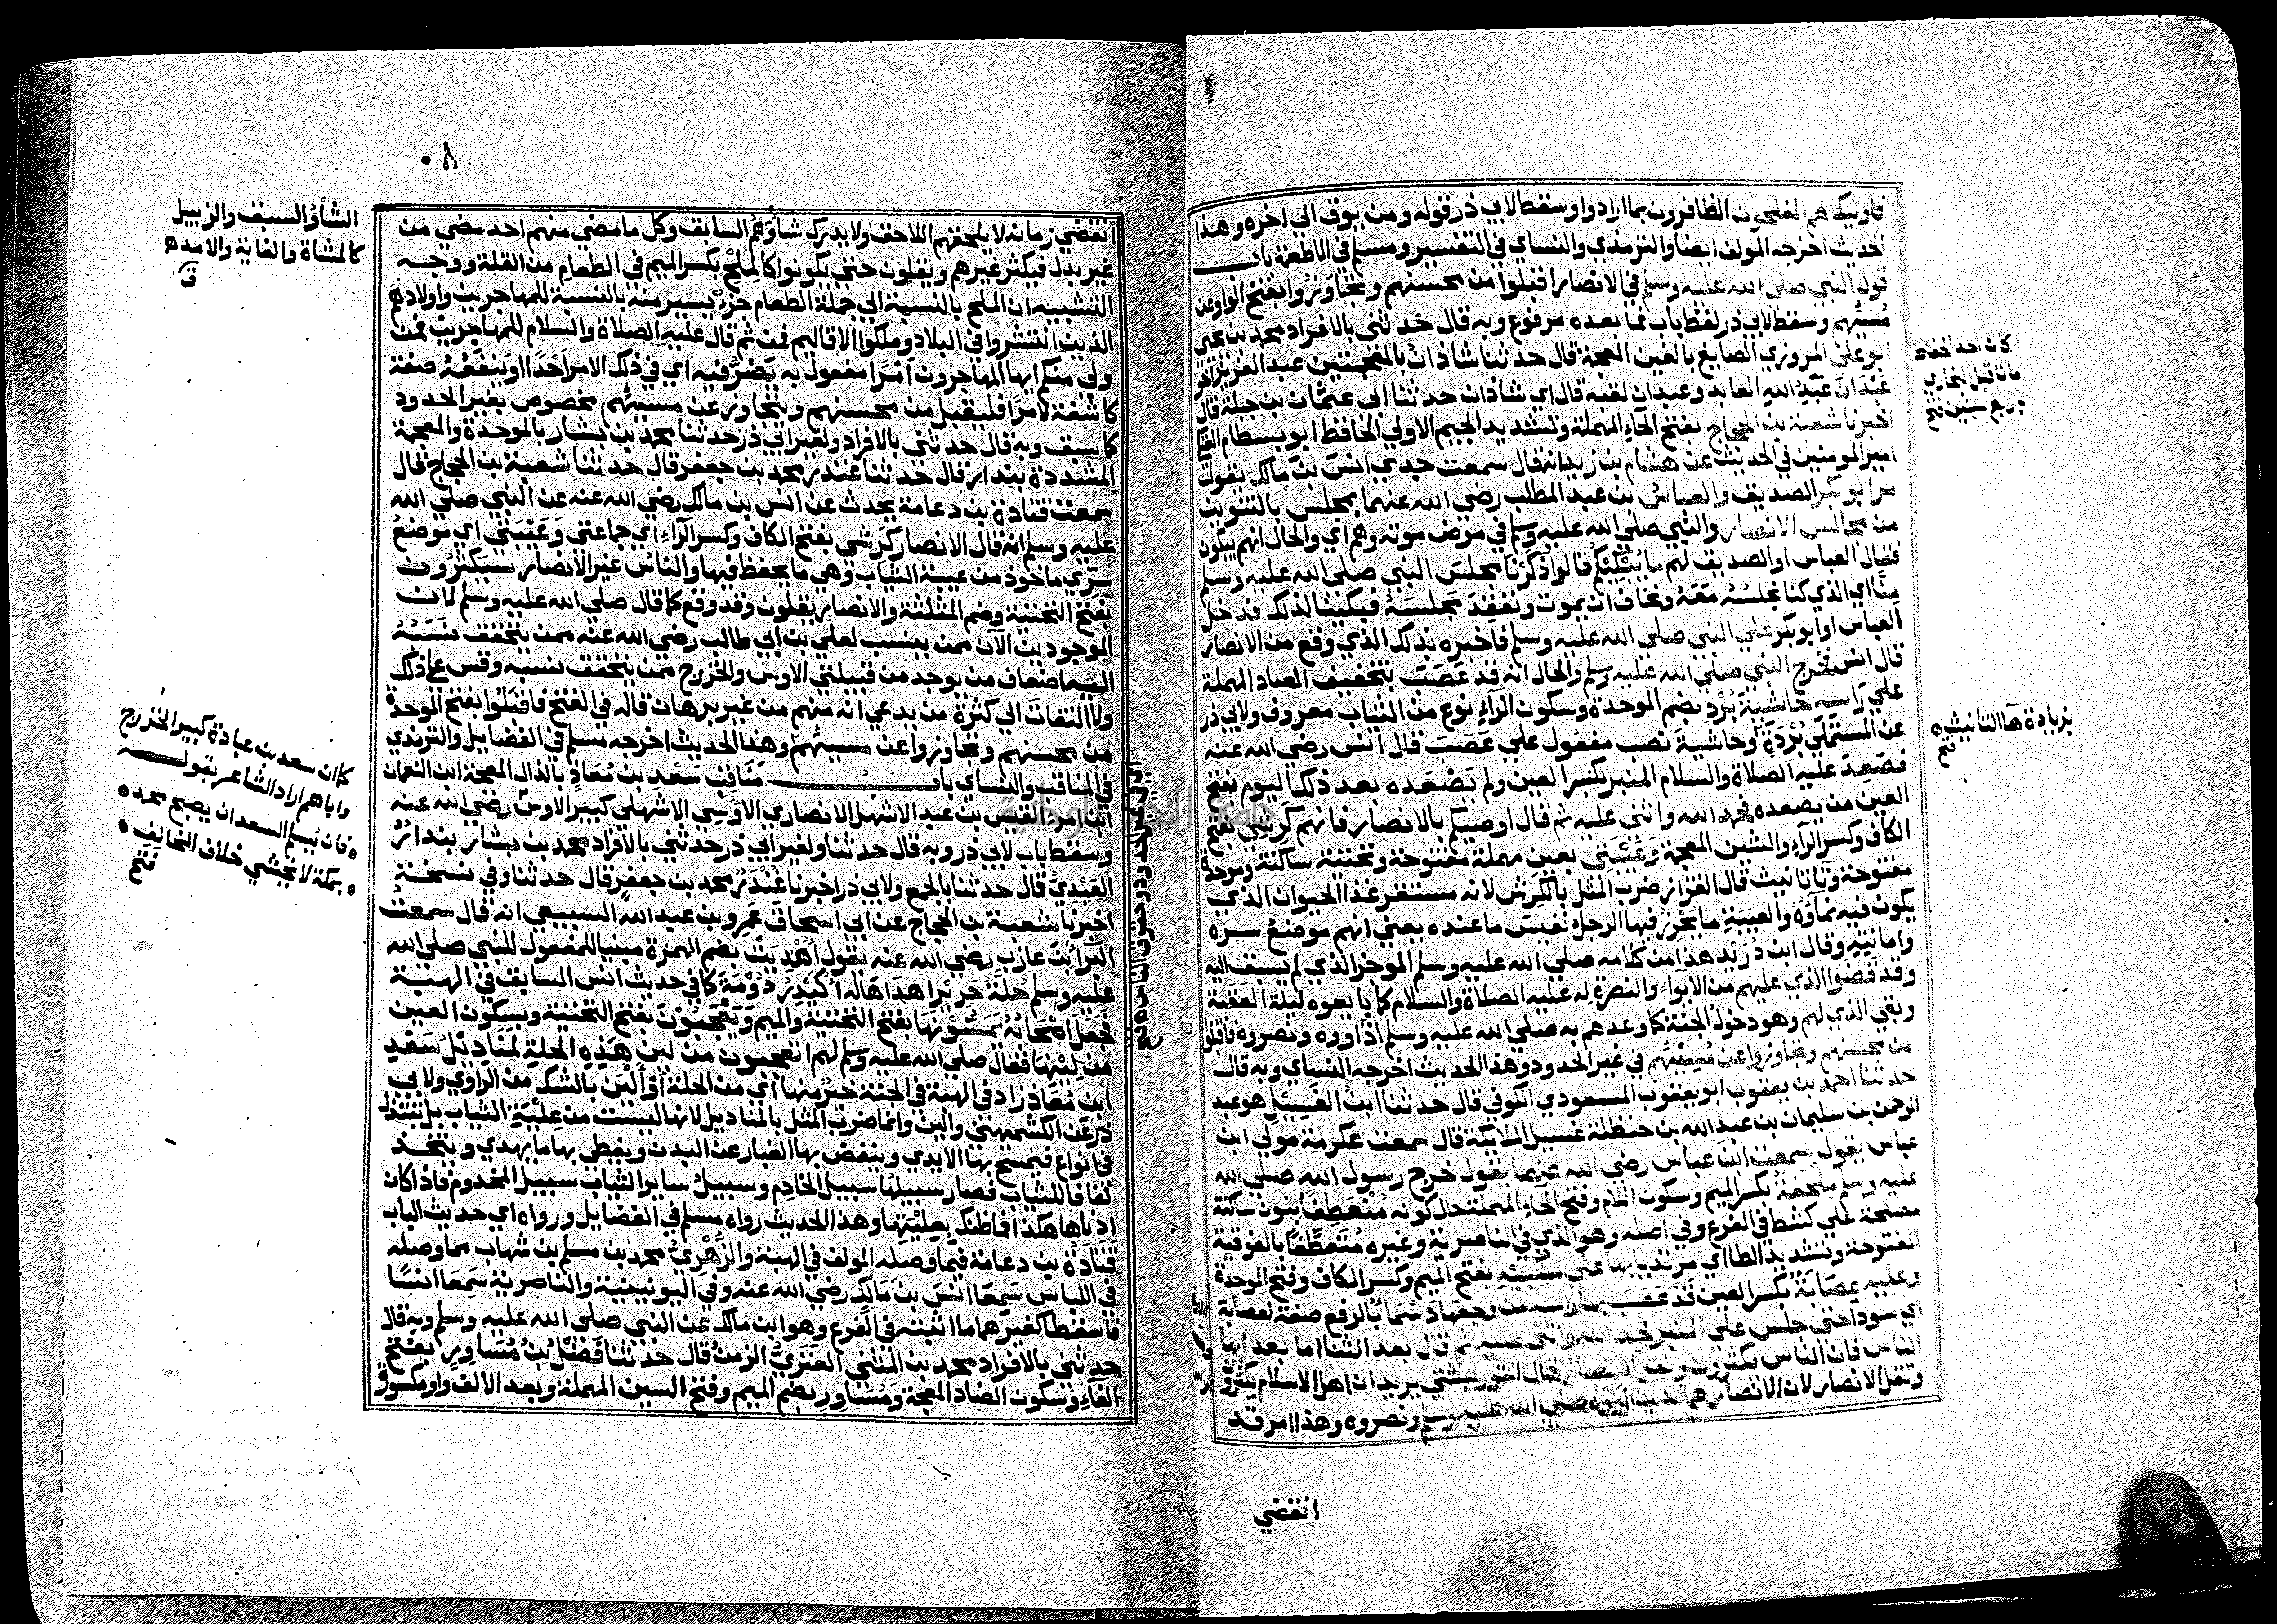 فاوليك هم المفلحون الظافرون بما ارادوا وسقط لابي ذر قوله ومن يوق الي اخره وهذا
الحديث اخرجه المولف ايضا والترمذي والنساي في التفسير ومسلم في الاطعمة باب
قول النبي صلي الله عليه وسلم في الانصار اقبلوا من محسنهم وتجاوزوا بفتح الواو عن
مسيهم وسقط لابي ذر لفظ باب فما بعده مرفوع وبه قال حدثني بالافراد محمد بن يحيي
ابو علي المروزي الصايغ بالغين المعجمة قال حدثنا شاذان بالمعجمتين عبد العزيز اخو
عبدان عبد الله العابد وعبدان لقبه قال اي شاذان حدثنا ابي عثمان بن جبلة قال
اخبرنا شعبة بن الحجاج بفتح الحاء المهملة وتشديد الجيم الاولي الحافظ ابو بسطام العتكي
امير المومنين في الحديث عن هشام بن زيد انه قال سمعت جدي انس بن مالك يقول
مر ابو بكر الصديق والعباس بن عبد المطلب رضي الله عنهما بمجلس بالتنوين
من مجالس الانصار والنبي صلي الله عليه وسلم في مرض موته وهم اي والحال انهم يبكون
فقال العباس او الصديق لهم ما يبكيكم قالوا ذكرنا مجلس النبي صلي الله عليه وسلم
منا اي الذي كنا نجلسه معه ونخاف ان يموت ونفقد مجلسه فبكينا لذلك فدخل
العباس او ابو بكر علي النبي صلي الله عليه وسلم فاخبره بذلك الذي وقع من الانصار
قال انس فخرج النبي صلي الله عليه وسلم والحال انه قد عصب بتخفيف الصاد المهملة
علي راسه حاشية برد بضم الموحدة وسكون الراء نوع من الثياب معروف ولابي ذر
عن المستملي بردة وحاشية نصب مفعول علي عصب قال انس رضي الله عنه
فصعد عليه الصلاة والسلام المنبر بكسر العين ولم يصعده بعد ذلك اليوم بفتح
العين من يصعده فحمد الله واثني عليه ثم قال اوصيكم بالانصار فانهم كرشي بفتح
الكاف وكسر الراء والشين المعجمة وعيبتي بعين مهملة مفتوحة وتحتية ساكنة وموحدة
مفتوحة وتا تانيث قال القزاز ضرب المثل بالكرش لانه مستقر غذا الحيوان الذي
يكون فيه نماوه والعيبة ما يحرز فيها الرجل نفيس ما عنده يعني انهم موضع سره
وامانيه وقال ابن دريد هذا من كلامه صلي الله عليه وسلم الموجز الذي لم يسبق اليه
وقد قضوا الذي عليهم من الايواء والنصرة له عليه الصلاة والسلام كما بايعوه ليلة العقبة
وبقي الذي لهم وهو دخول الجنة كما وعدهم به صلي الله عليه وسلم اذا اووه ونصروه فاقبلوا
من محسنهم وتجاوزوا عن مسيئهم في غير الحدود وهذا الحديث اخرجه النساي وبه قال
حدثنا احمد بن يعقوب ابو يعقوب المسعودي الكوفي قال حدثنا ابن الغسيل هو عبد
الرحمن بن سليمان بن عبد الله بن حنظلة غسيل الملايكة قال سمعت عكرمة مولي ابن
عباس يقول سمعت ابن عباس رضي الله عنهما يقول خرج رسول الله صلي الله
عليه وسلم ملحفة بكسر الميم وسكون اللام وفتح الحاء المهملة حال كونه منعطفا بنون ساكنة
مصلحة علي كشط في الفرع وفي اصله وهو الذي في الناصرية وغيره متعطفا بالفوقية
المفتوحة وتشديد الطا اي مرتديا بها علي منكبيه بفتح الميم وكسر الكاف وفتح الموحدة
وعليه عصابة بكسر العين قد عصب بها راسه من وجعها دسما بالرفع صفة لعصابة
اي سودا حتي جلس علي المنبر فحمد الله واثني عليه ثم قال بعد الثنا اما بعد ايها
الناس فان الناس يكثرون وتقل الانصار قال التوربشتي يريد ان اهل الاسلام يكثرون
وتقل الانصار لان الانصار هم الذين اووه صلي الله عليه وسلم ونصروه وهذا امر قد
انقضي
كان احد الحفاظ
مات قبل البخاري
باربع سنين فتح
بزيادة ها التانيث
فتح
انقضي زمانه لا يلحقهم اللاحق ولا يدرك شاوهم السابق وكل ما مضي منهم احد مضي من
غير بدل فيكثر غيرهم ويقلون حتي يكونوا كالملح بكسر الميم في الطعام من القلة ووجه
التشبيه ان الملح بالنسبة الي جملة الطعام جزء يسير منه بالنسبة للمهاجرين واولادهم
الذين انتشروا في البلاد وملكوا الاقاليم فمن ثم قال عليه الصلاة والسلام للمهاجرين فمن
ولي منكم ايها المهاجرون امرا مفعول به يضر فيه اي في ذلك الامر احدا او ينفعه صفة
كاشفة لامرا فليقبل من محسنهم ويتجاوز عن مسيهم مخصوص بغير الحدود
كما سبق وبه قال حدثني بالافراد ولغير ابي ذر حدثنا محمد بن بشار بالموحدة والمعجمة
المشددة بندار قال حدثنا غندر محمد بن جعفر قال حدثنا شعبة بن الحجاج قال
سمعت قتادة بن دعامة يحدث عن انس بن مالك رضي الله عنه عن النبي صلي الله
عليه وسلم انه قال الانصار كرشي بفتح الكاف وكسر الراء اي جماعتي وعيبتي اي موضع
سري ماخوذ من عيبة الثياب وهي ما يحفظ فيها والناس غير الانصار سيكثرون
بفتح التحتية وضم المثلثة والانصار يقلون وقد وقع كما قال صلي الله عليه وسلم لان
الموجودين الآن ممن ينسب لعلي بن ابي طالب رضي الله عنه ممن يتحقق نسبه
اليه اضعاف من يوجد من قبيلتي الاوس والخزرج ممن يتحقق نسبه وقس علي ذلك
ولا التفات الي كثرة من يدعي انه منهم من غير برهان قاله في الفتح فاقبلوا بفتح الموحدة
من محسنهم وتجاوزوا عن مسيئهم وهذا الحديث اخرجه مسلم في الفضايل والترمذي
في المناقب والنساي باب مناقب سعد بن معاذ بالذال المعجمة ابن النعمان
ابن امرء القيس بن عبد الاشهل الانصاري الاوسي الاشهلي كبير الاوس رضي الله عنه
وسقط باب لابي ذر وبه قال حدثنا ولغير ابي ذر حدثني بالافراد محمد بن بشار بندار
العبدي قال حدثنا بالجمع ولابي ذر اخبرنا غندر محمد بن جعفر قال حدثنا وفي نسخة
اخبرنا شعبة بن الحجاج عن ابي اسحاق عمرو بن عبد الله السبيعي انه قال سمعت
البرا بن عازب رضي الله عنه يقول اهديت بضم الهمزة مبنيا للمفعول للنبي صلي الله
عليه وسلم حلة حرير اهداها له اكيدر دومة كما في حديث انس السابق في الهبة
فجعل اصحابه يمسونها بفتح التحتية والميم ويعجبون بفتح التحتية وسكون العين
من لينها فقال صلي الله عليه وسلم لهم اتعجبون من لين هذه الحلة لمناديل سعد
ابن معاذ زاد في الهبة في الجنة خير منها اي من الحلة او الين بالشك من الراوي ولابي
ذر عن الكشميهني والين وانما ضرب المثل بالمناديل لانها ليست من علية الثياب بل تبتذل
في انواع فيمسح بها الايدي وينفض بها الغبار عن البدن ويغطي بها ما يهدي ويتخذ
لفافا للثياب فصار سبيلها سبيل الخادم وسبيل ساير الثياب سبيل المخدوم فاذا كان
ادناها هكذا فما ظنك بعليتها وهذا الحديث رواه مسلم في الفضايل ورواه اي حديث الباب
قتادة بن دعامة فيما وصله المولف في الهبة والزهري محمد بن مسلم بن شهاب مما وصله
في اللباس سمعا انس بن مالك رضي الله عنه وفي اليونينية والناصرية سمعا انسا
فاسقطا كغيرهما ما اثبته في الفرع وهو ابن مالك عن النبي صلي الله عليه وسلم وبه قال
حدثني بالافراد محمد بن المثني العنزي الزمن قال حدثنا فضل بن مساور بفتح
الفاء وسكون الضاد المعجمة ومساور بضم الميم وفتح السين المهملة وبعد الالف واو مكسورة
الشأو السبق والزبيل
كالمشاة والغاية والامد ه
ق
كان سعد بن عبادة كبير الخزرج
واياهم اراد الشاعر بقوله
فان يسلم السعدان يصبح محمد
بمكة لا يخشي خلاف المخالف
فتح